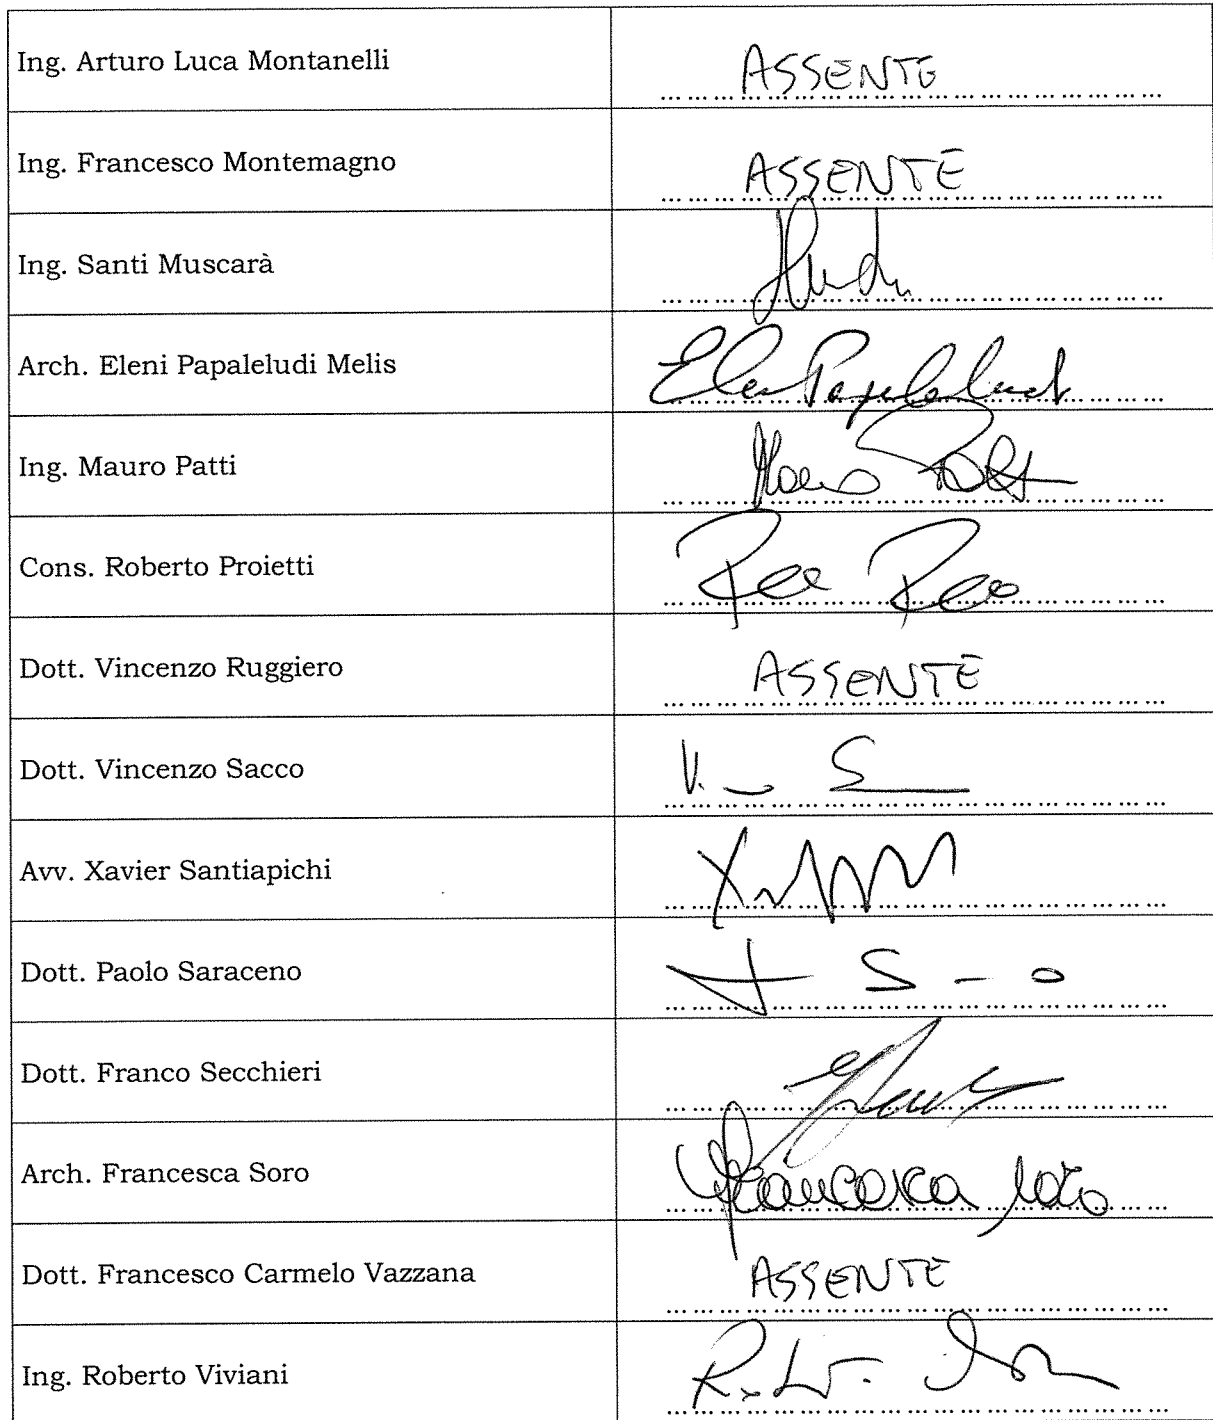 Ing. Arturo Luca Montanelli ASSENTE
Ing. Francesco Montemagno ASSENTE
Ing. Santi Muscarà
Arch. Eleni Papaleludi Melis
Ing. Mauro Patti
Cons. Roberto Proietti
Dott. Vincenzo Ruggiero ASSENTE
Dott. Vincenzo Sacco
Avv. Xavier Santiapichi
Dott. Paolo Saraceno
Dott. Franco Secchieri
Arch. Francesca Soro Francesca Soro
Dott. Francesco Carmelo Vazzana ASSENTE
Ing. Roberto Viviani